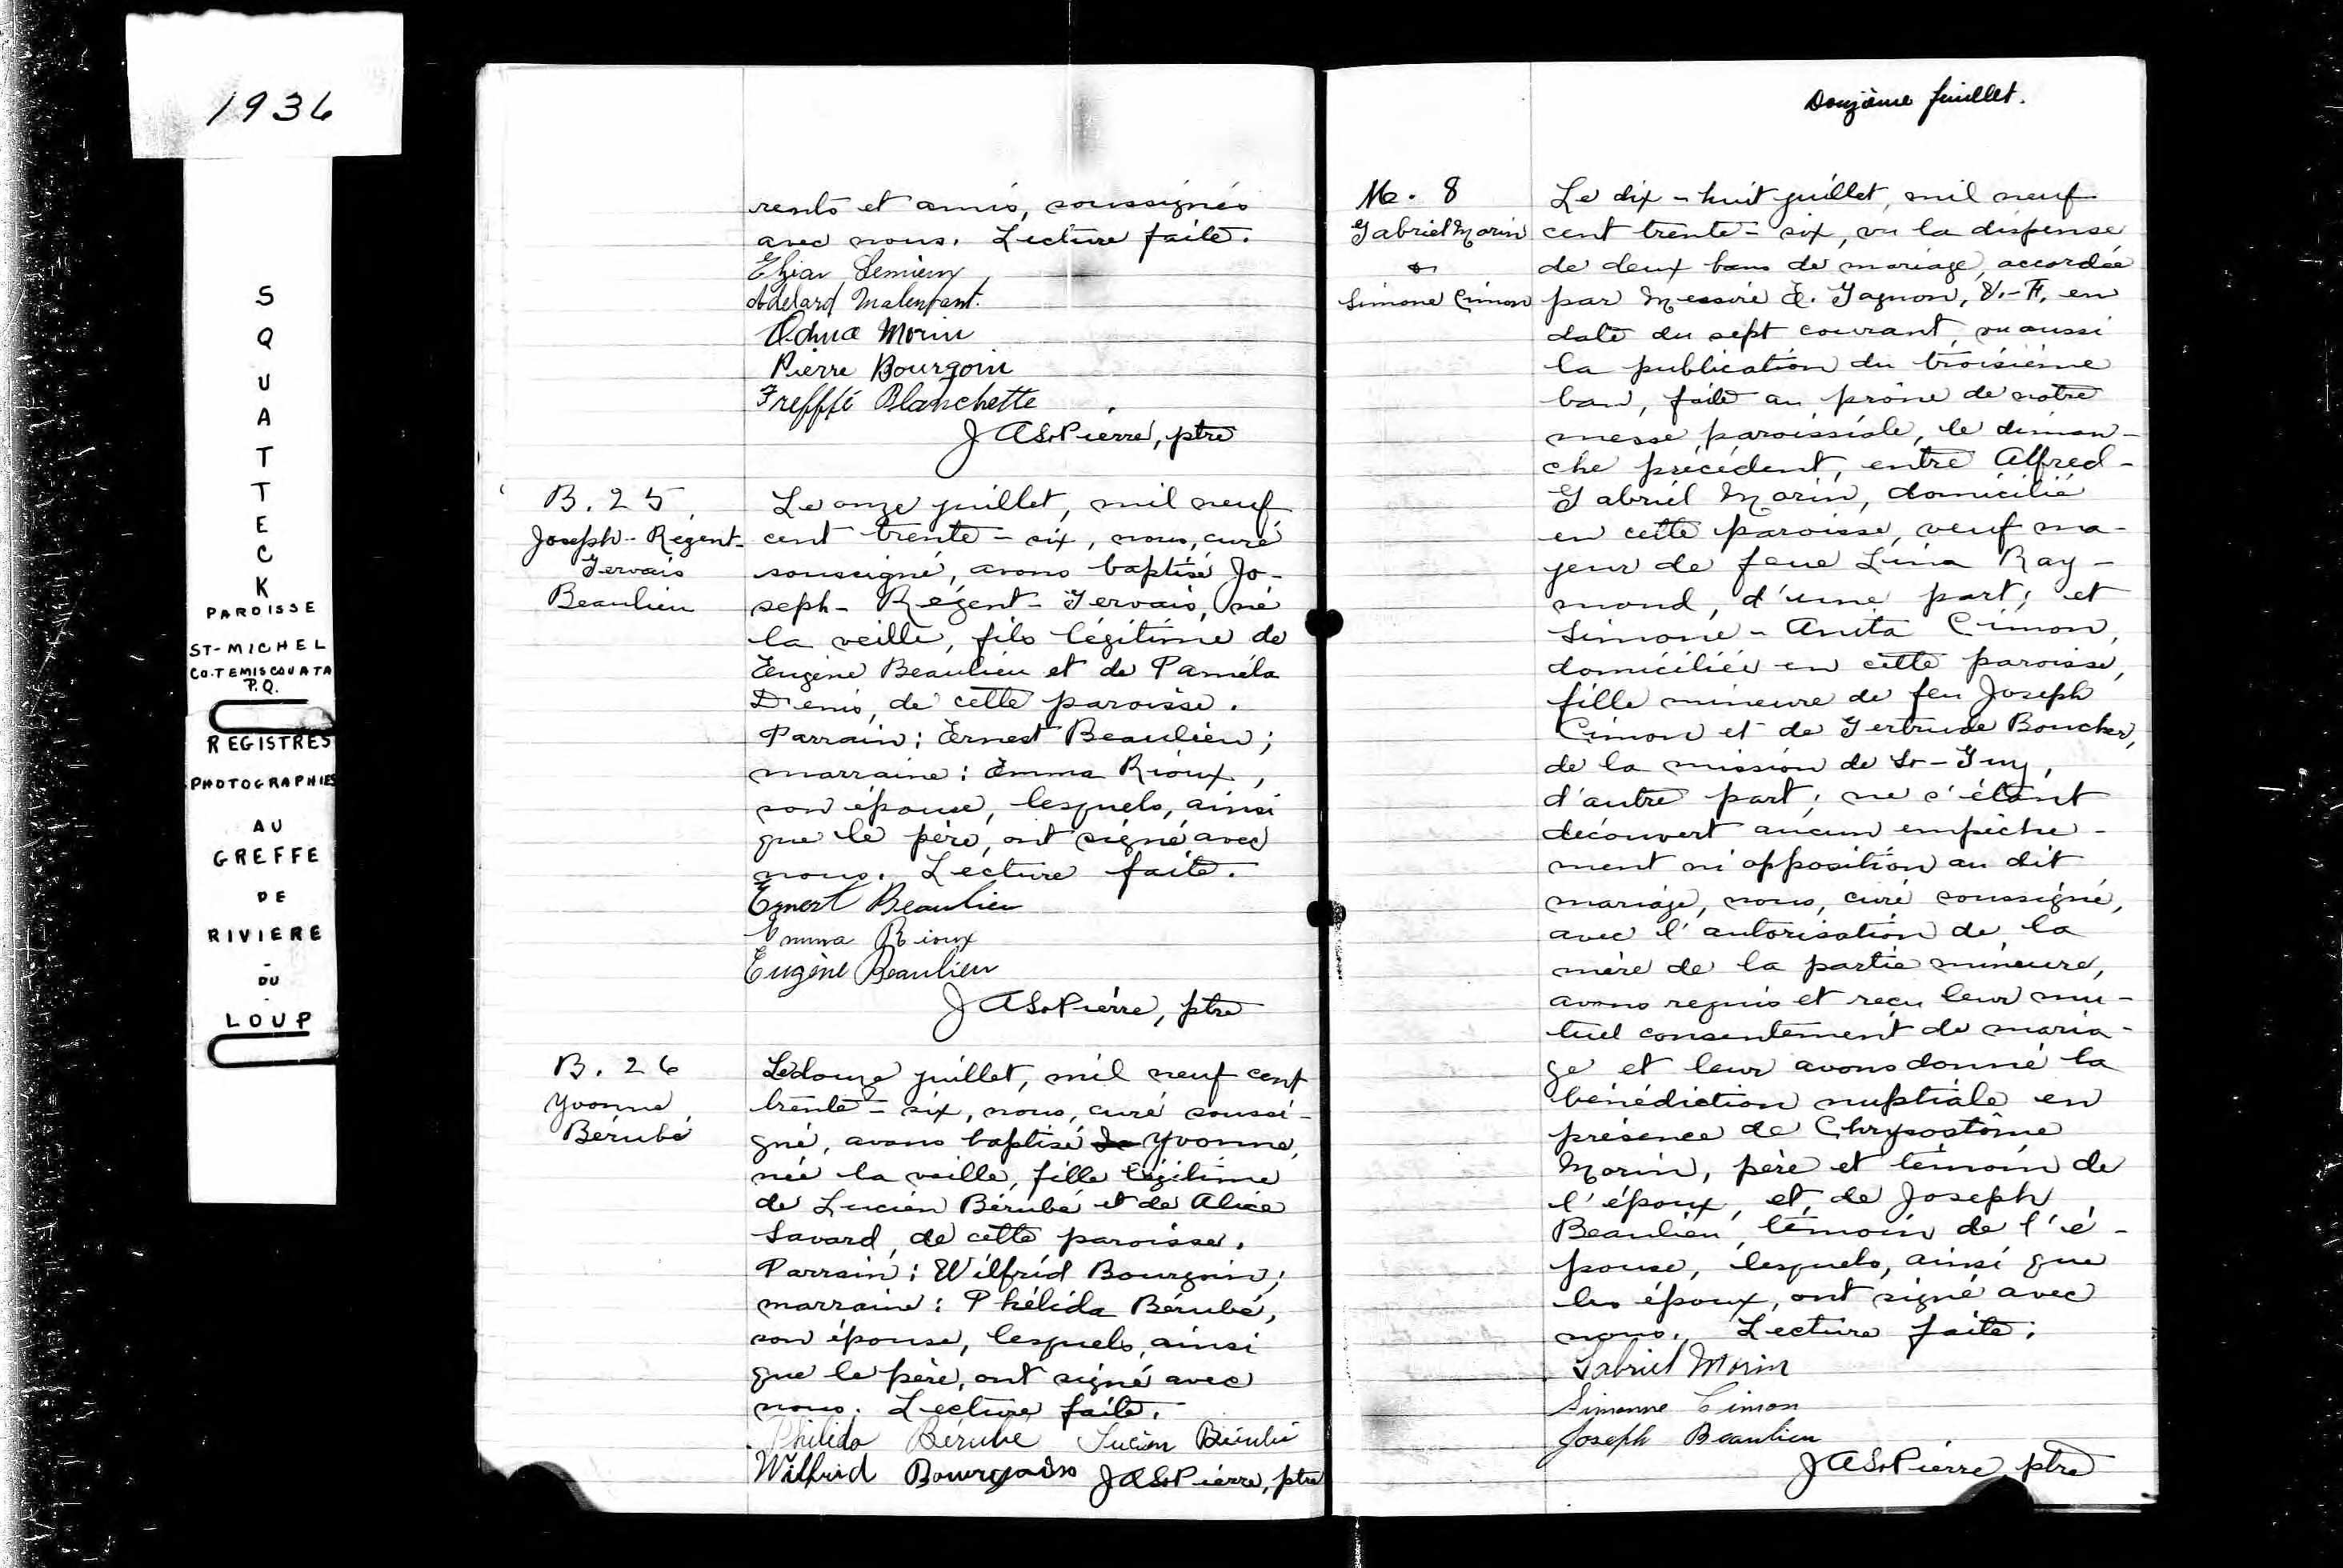 1936
S
Q
U
A
T
T
E
C
K
PAROISSE
ST-MICHEL
CO. TEMISCOUATA
P.Q.
REGISTRES
PHOTOGRAPHIES
AU
GREFFE
DE
RIVIERE
-
DU
-
LOUP
rents et amis, soussignés
avec nous. Lecture faite.
Elzéar Lemieux
Adelard Malenfant.
Edmae Morin
Pierre Bourgoin
Trefflé Blanchette
J A St-Pierre, ptre
B. 25
Joseph-Régent-
Gervais
Beaulieu
Le onze juillet, mil neuf
cent trente-six, nous, curé
soussigné, avons baptisé Jo-
seph-Régent-Gervais, né
la veille, fils légitime de
Eugène Beaulieu et de Paméla
Denis, de cette paroisse.
Parrain: Ernest Beaulieu;
marraine: Emma Rioux,
son épouse, lesquels, ainsi
que le père, ont signé avec
nous. Lecture faite.
Ernest Beaulieu
Emma Rioux
Eugène Beaulieu
J A St-Pierre, ptre
B. 26
Yvonne
Bérubé
Le douze juillet, mil neuf cent
trente-six, nous, curé soussi-
gné, avons baptisé Yvonne,
née la veille, fille légitime
de Lucien Bérubé et de Alice
Savard, de cette paroisse.
Parrain: Wilfrid Bourgoin;
marraine: Phélida Bérubé,
son épouse, lesquels, ainsi
que le père, ont signé avec
nous. Lecture faite.
Philida Bérubé Lucien Bérubé
Wilfrid Bourgoin J A St-Pierre, ptre
Douzième feuillet.
M. 8
Gabriel Morin
&
Simone Cimon
Le dix-huit juillet, mil neuf
cent trente-six, vu la dispense
de deux bans de mariage, accordée
par Messire E. Gagnon, V.-F., en
date du sept courant, vu aussi
la publication du troisième
ban, faite au prône de notre
messe paroissiale, le diman-
che précédent, entre Alfred-
Gabriel Morin, domicilié
en cette paroisse, veuf ma-
jeur de feue Lina Ray-
mond, d'une part; et
Simone-Anita Cimon,
domiciliée en cette paroisse,
fille mineure de feu Joseph
Cimon et de Gertrude Boucher,
de la mission de St-Guy,
d'autre part; ne s'étant
découvert aucun empêche-
ment ni opposition au dit
mariage, nous, curé soussigné,
avec l'autorisation de la
mère de la partie mineure,
avons requis et reçu leur mu-
tuel consentement de maria-
ge et leur avons donné la
bénédiction nuptiale en
présence de Chrysostôme
Morin, père et témoin de
l'époux, et de Joseph
Beaulieu, témoin de l'é-
pouse, lesquels, ainsi que
les époux, ont signé avec
nous. Lecture faite.
Gabriel Morin
Simonne Cimon
Joseph Beaulieu
J A St-Pierre ptre